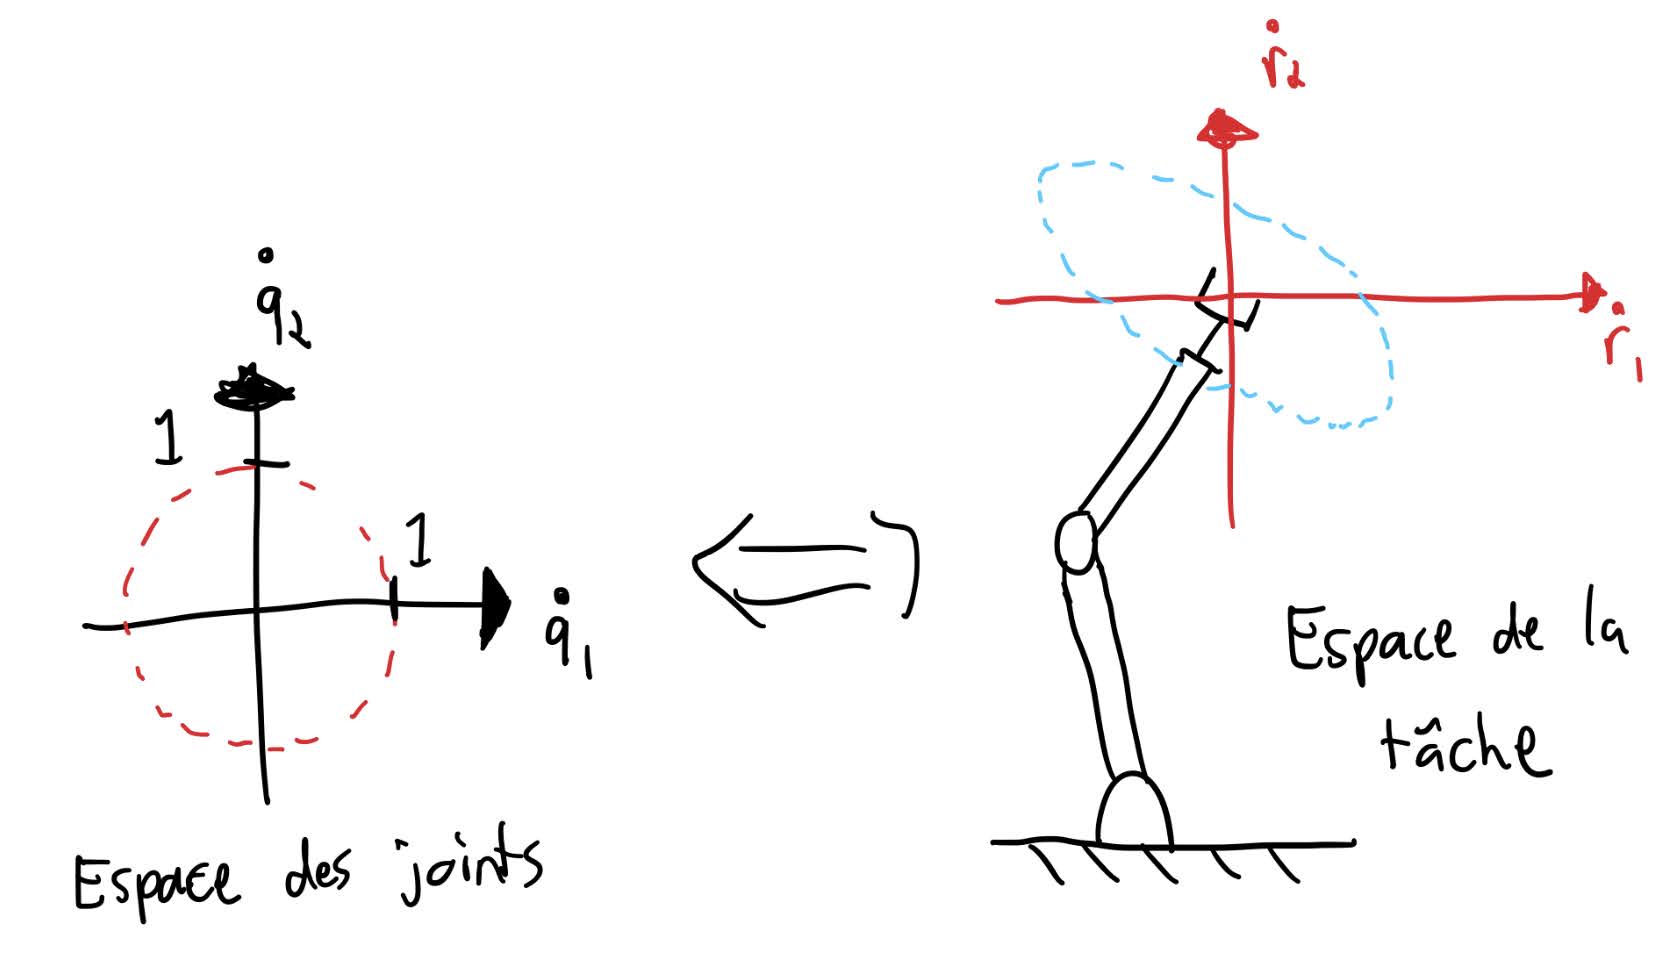 ṙ₂
ṙ₁
q̇₂
1
1
q̇₁
Espace des joints
Espace de la
tâche